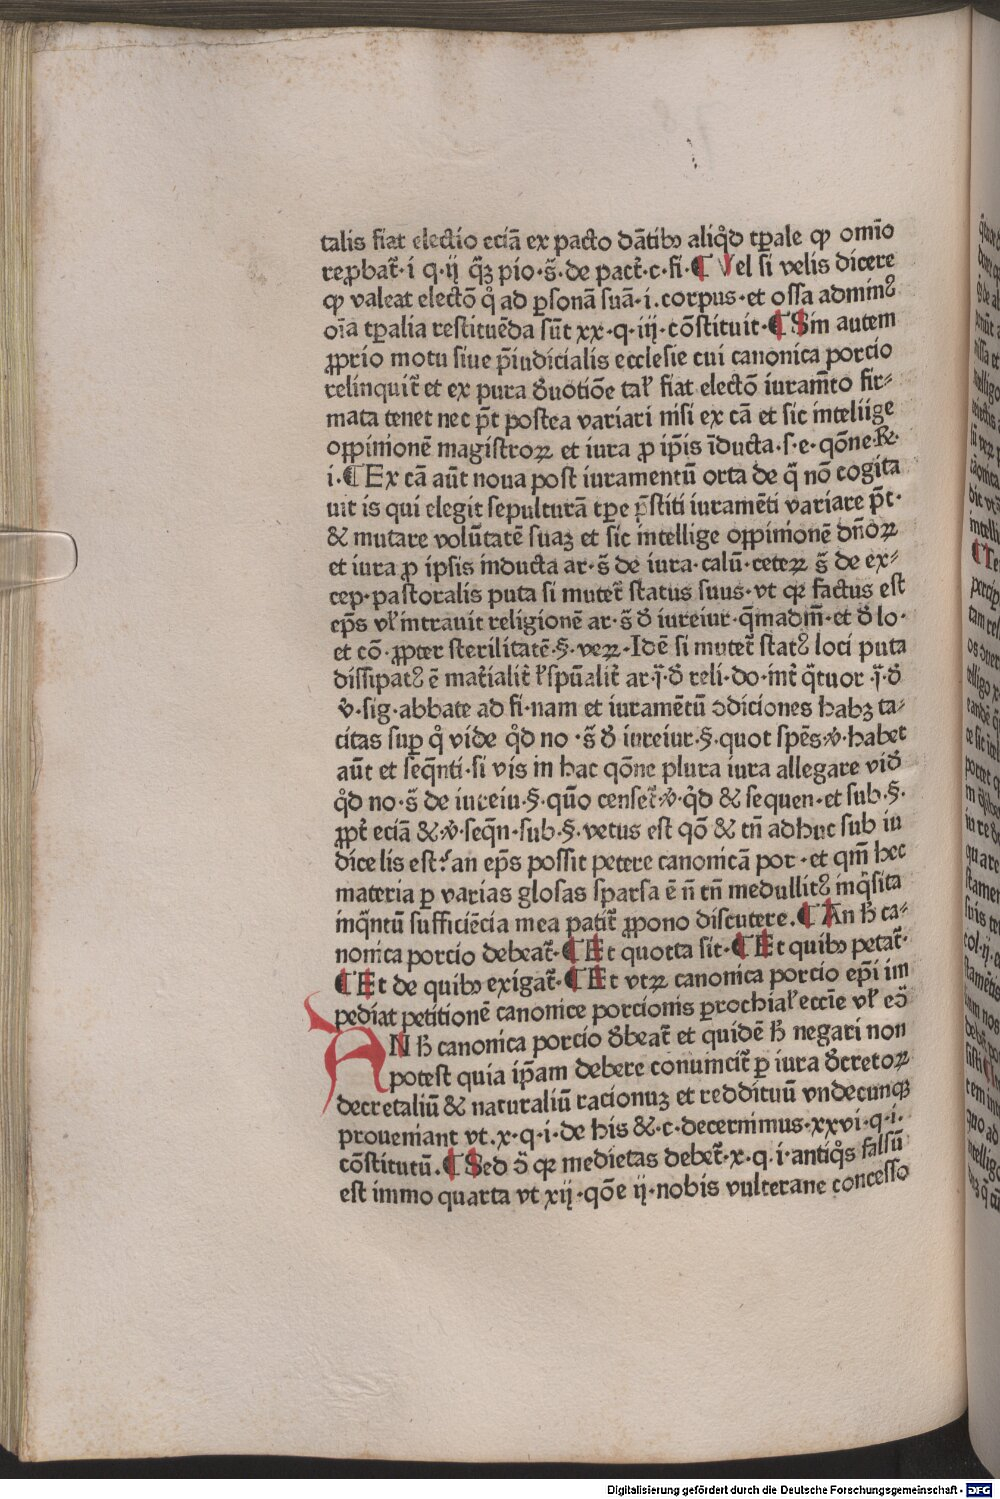 talis fiat electio eciā ex pacto dātibꝰ aliqd̾ tꝑale qꝫ omīo
reꝓbat᷑· i q·ij q̄ꝫ pio·s̄·de pact᷑·c·fi·¶ Vel si velis dicere
qꝫ valeat electō q̊ ad ꝑsonā suā·i·corpus·et ossa admin⁹
oīa tꝑalia restituēda sūt xx·q·iij·cōstituit·¶ Sin autem
ꝓprio motu siue p̄iudicialis ecclesie cui canonica porcio
relinquit᷑ et ex pura d̾uotiōe tal̵ fiat electō iuram̄to fir⸗
mata tenet nec p̄t postea variari nisi ex cā et sic inteliige
oppinionē magistroꝝ et iura ꝓ ip̄is īducta·s·e·qōne·℞·
i·¶ Ex cā aūt noua post iuramentū orta de q̄ nō cogita
uit is qui elegit sepulturā tꝑe p̄stiti iuramēti variare p̄t·
& mutare volūtatē suaꝫ et sic intellige oppinionē dn̄oꝝ
et iura ꝓ ipsis inducta ar·s̄ de iura·calū·ceteꝝ s̄ de ex⸗
cep·pastoralis puta si mutet᷑ status suus·vt qꝛ factus est
ep̄s vl̵ intrauit religionē ar·s̄ d̾ iureiur·q̄madm̄·et d̾ lo·
et cō·ꝓpter sterilitatē·§·veꝝ·Idē si mutet᷑ stat⁹ loci puta
dissipat⁹ ē mat᷑ialit᷑ l̵ spūalit᷑ ar·j̄·d̾ reli·do·int᷑ q̄tuor·j̄·d̾
v̾·sig·abbate ad fi·nam et iuramētū ɔdiciones habꝫ ta⸗
citas suꝑ q̊ vide qd̾ no·s̄ d̾ iureiur·§·quot spēs·v̾·habet
aūt et seq̄nti·si vis in hac qōne plura iura allegare vid̾
qd̾ no·s̄ de iureiu·§·quo censet᷑·v̾·qd̾ & sequen·et sub·§·
ꝓpt᷑ eciā &·v̾·seq̄n·sub·§·vetus est qō & tn̄ adhuc sub iu
dice lis est·an ep̄s possit petere canonicā por·et qm̄ hec
materia ꝑ varias glosas sparsa ē n̄ tn̄ medullit⁹ inq̄sita
inq̄ntū sufficiēcia mea patit᷑ ꝓpono discutere·¶ An h̄ ca⸗
nonica porcio debeat᷑·¶ Et quotta sit·¶ Et quibꝰ petat᷑·
¶ Et de quibꝰ exigat᷑·¶ Et vtꝝ canonica porcio ep̄i im
pediat petitionē canonice porcionis ꝑrochial̵ eccīe vl̵ eō
AN h̄ canonica porcio d̾beat᷑ et quidē h̄ negari non
potest quia ip̄am debere conuincit᷑ ꝑ iura d̾cretoꝝ
decretaliū & naturaliū racionuꝫ et reddituū vndecunqꝫ
proueniant vt·x·q·i·de his &·c·decernimus·xxvi·q·i·
cōstitutū·¶ Sed ɔ̄ qꝛ medietas debet᷑·x·q·i·antiq̊s falsū
est immo quarta vt xij·qōe ij·nobis vulterane concesso
Digitalisierung gefördert durch die Deutsche Forschungsgemeinschaft - DFG